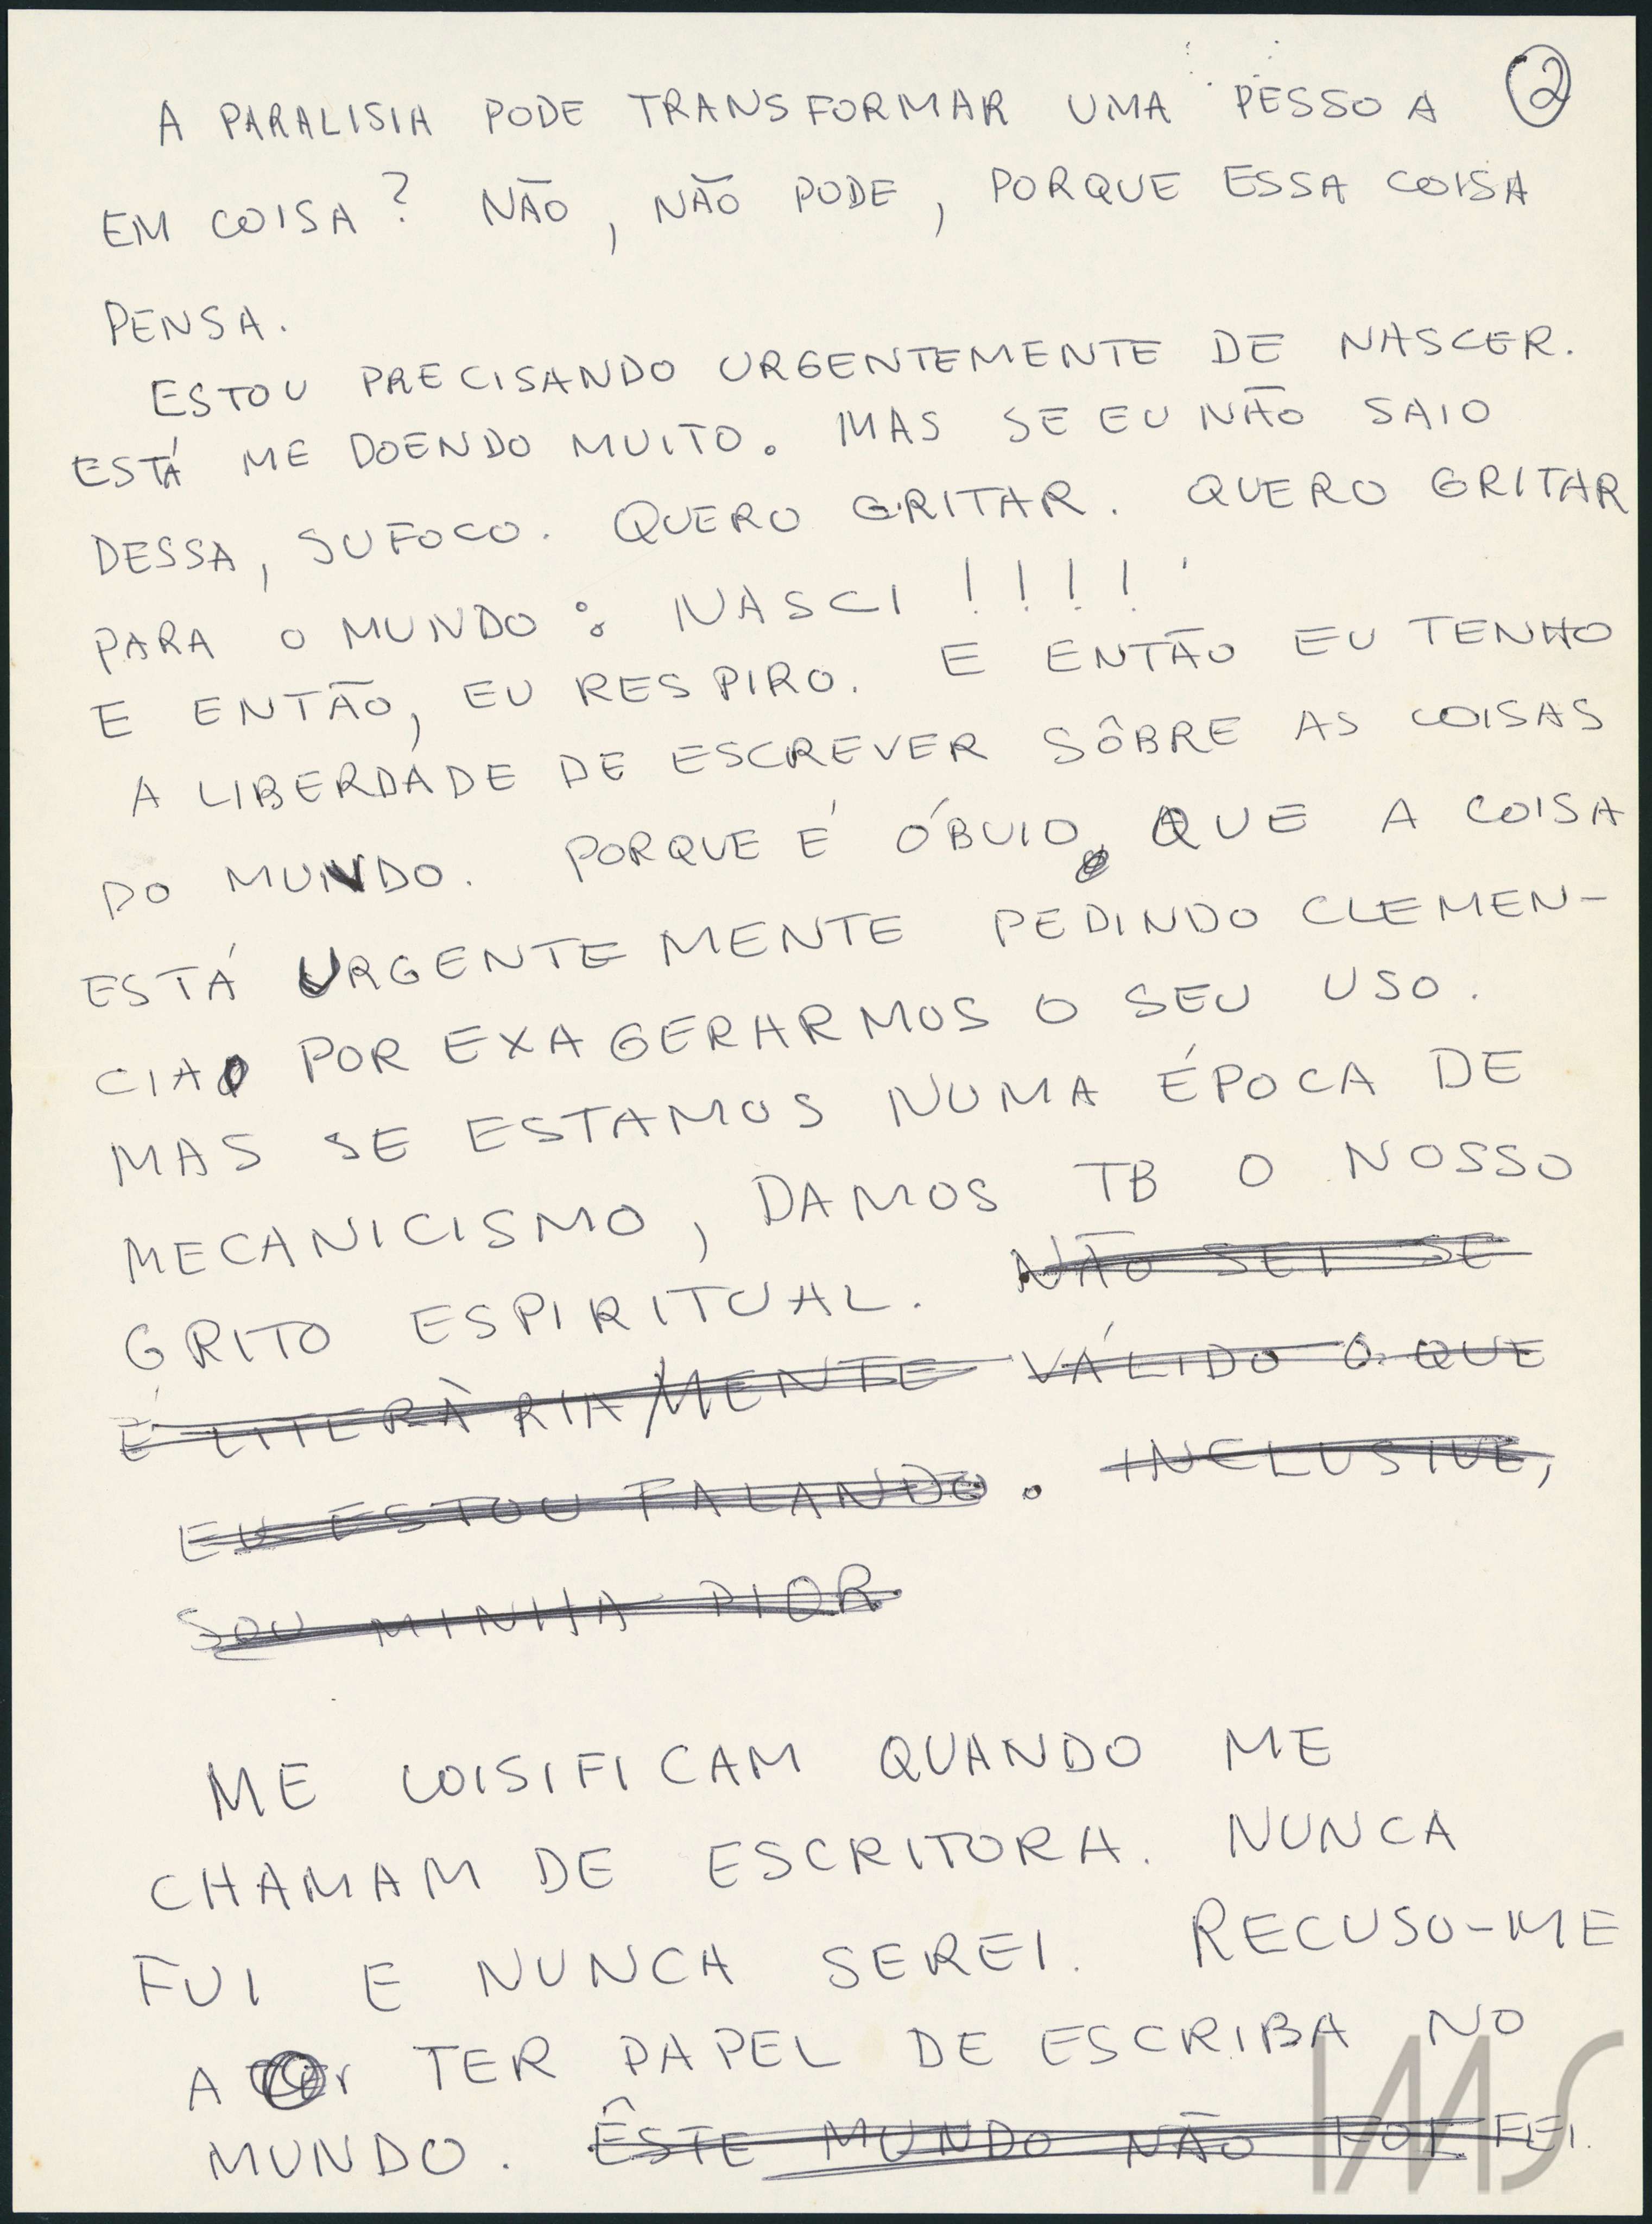 ②
A PARALISIA PODE TRANSFORMAR UMA PESSOA
EM COISA? NÃO, NÃO PODE, PORQUE ESSA COISA
PENSA.
ESTOU PRECISANDO URGENTEMENTE DE NASCER.
ESTÁ ME DOENDO MUITO. MAS SE EU NÃO SAIO
DESSA, SUFOCO. QUERO GRITAR. QUERO GRITAR
PARA O MUNDO: NASCI!!!!
E ENTÃO, EU RESPIRO. E ENTÃO EU TENHO
A LIBERDADE DE ESCREVER SÔBRE AS COISAS
DO MUNDO. PORQUE É ÓBVIO QUE A COISA
ESTÁ URGENTEMENTE PEDINDO CLEMEN-
CIA POR EXAGERARMOS O SEU USO.
MAS SE ESTAMOS NUMA ÉPOCA DE
MECANICISMO, DAMOS TB O NOSSO
GRITO ESPIRITUAL. NÃO SEI SE
É LITERÀRIAMENTE VÁLIDO O QUE
EU ESTOU FALANDO. INCLUSIVE,
SOU MINHA PIOR
ME COISIFICAM QUANDO ME
CHAMAM DE ESCRITORA. NUNCA
FUI E NUNCA SEREI. RECUSO-ME
A TER PAPEL DE ESCRIBA NO
MUNDO. ÊSTE MUNDO NÃO FOI FEI
IMS